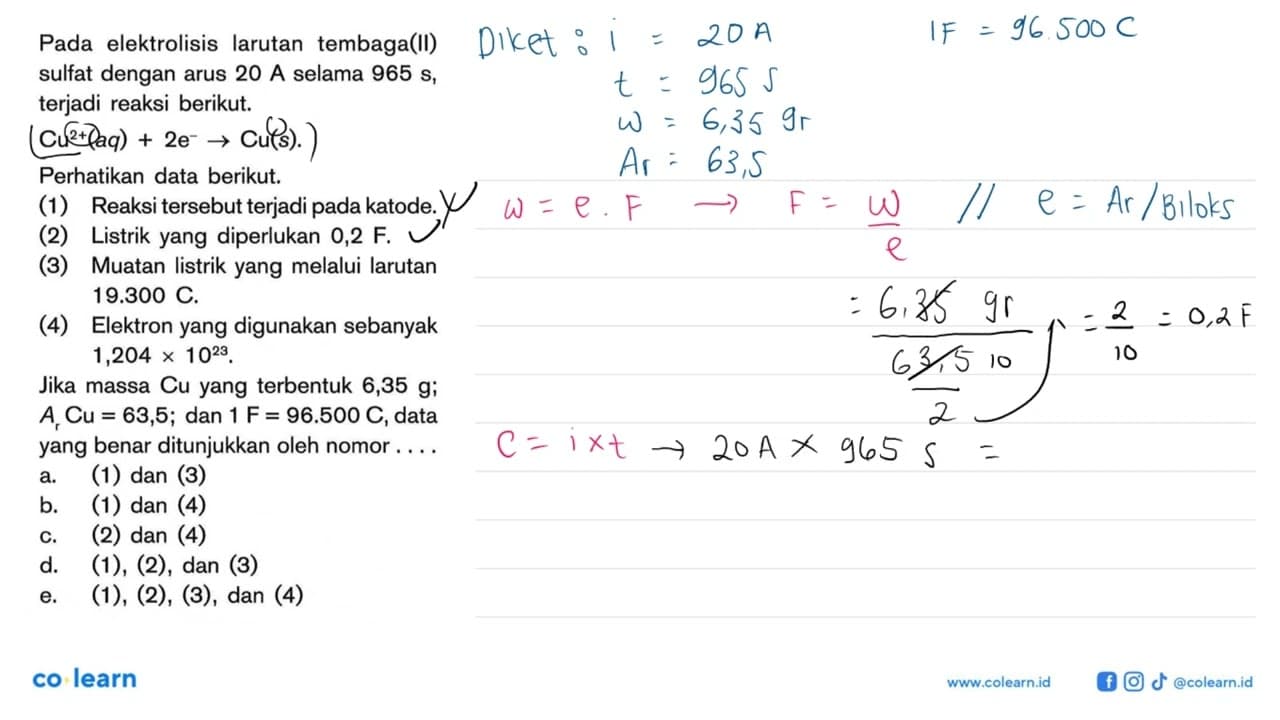 Pada elektrolisis larutan tembaga(II)
sulfat dengan arus 20 A selama 965 s,
terjadi reaksi berikut.
Cu²⁺(aq) + 2e⁻ → Cu(s).
Perhatikan data berikut.
(1) Reaksi tersebut terjadi pada katode.
(2) Listrik yang diperlukan 0,2 F.
(3) Muatan listrik yang melalui larutan
19.300 C.
(4) Elektron yang digunakan sebanyak
1,204 × 10²³.
Jika massa Cu yang terbentuk 6,35 g;
Aᵣ Cu = 63,5; dan 1 F = 96.500 C, data
yang benar ditunjukkan oleh nomor . . . .
a. (1) dan (3)
b. (1) dan (4)
c. (2) dan (4)
d. (1), (2), dan (3)
e. (1), (2), (3), dan (4)
Diket : i = 20 A
t = 965 s
w = 6,35 gr
Ar = 63,5
1F = 96.500 C
w = e . F → F = w/e // e = Ar/Biloks
= 6,35 gr
63,5 10
2
= 2/10 = 0,2 F
C = i × t → 20 A × 965 s =
co learn
www.colearn.id
@colearn.id